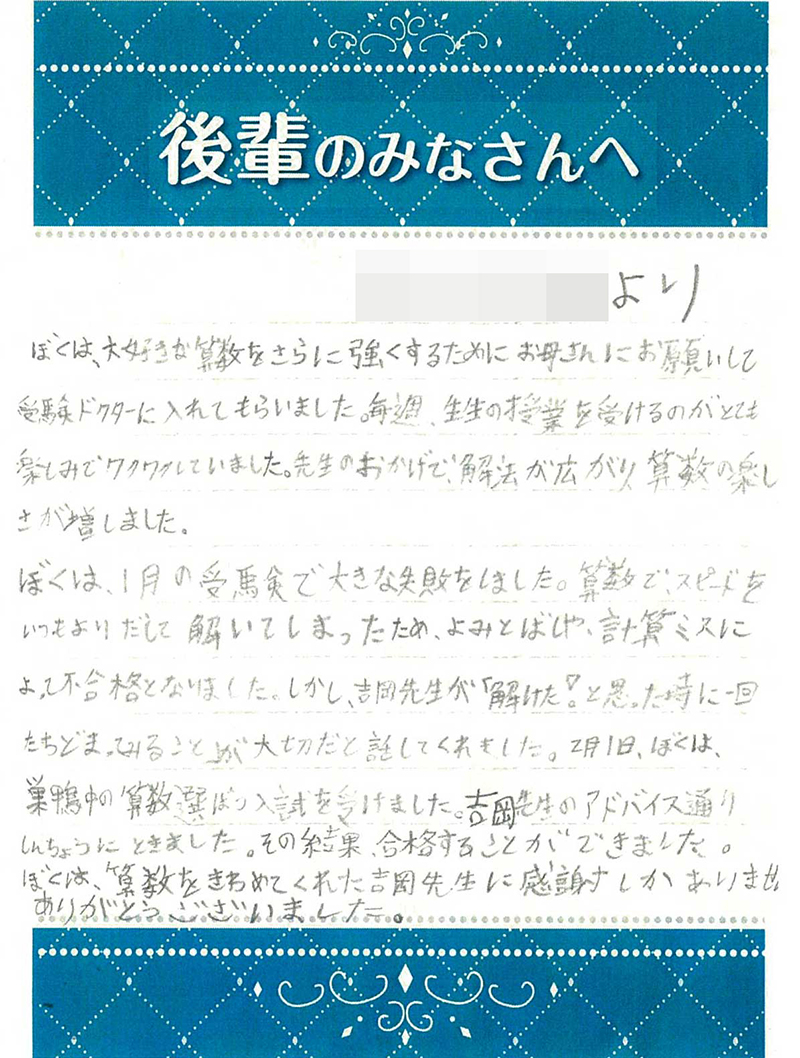 後輩のみなさんへ
より
ぼくは、大好きな算数をさらに強くするためにお母さんにお願いして
受験ドクターに入れてもらいました。毎週、先生の授業を受けるのがとても
楽しみでワクワクしていました。先生のおかげで、解法が広がり算数の楽し
さが増しました。
ぼくは、1月の受験で大きな失敗をしました。算数で、スピードを
いつもよりだして解いてしまったため、よみとばしや、計算ミスに
よって不合格となりました。しかし、吉岡先生が「解けた!」と思った時に一回
たちどまってみることが大切だと話してくれました。2月1日、ぼくは、
巣鴨中の算数選ばつ入試を受けました。吉岡先生のアドバイス通り
しんちょうにときました。その結果、合格することができました。
ぼくは、算数をきわめてくれた吉岡先生に感謝しかありません
ありがとうございました。